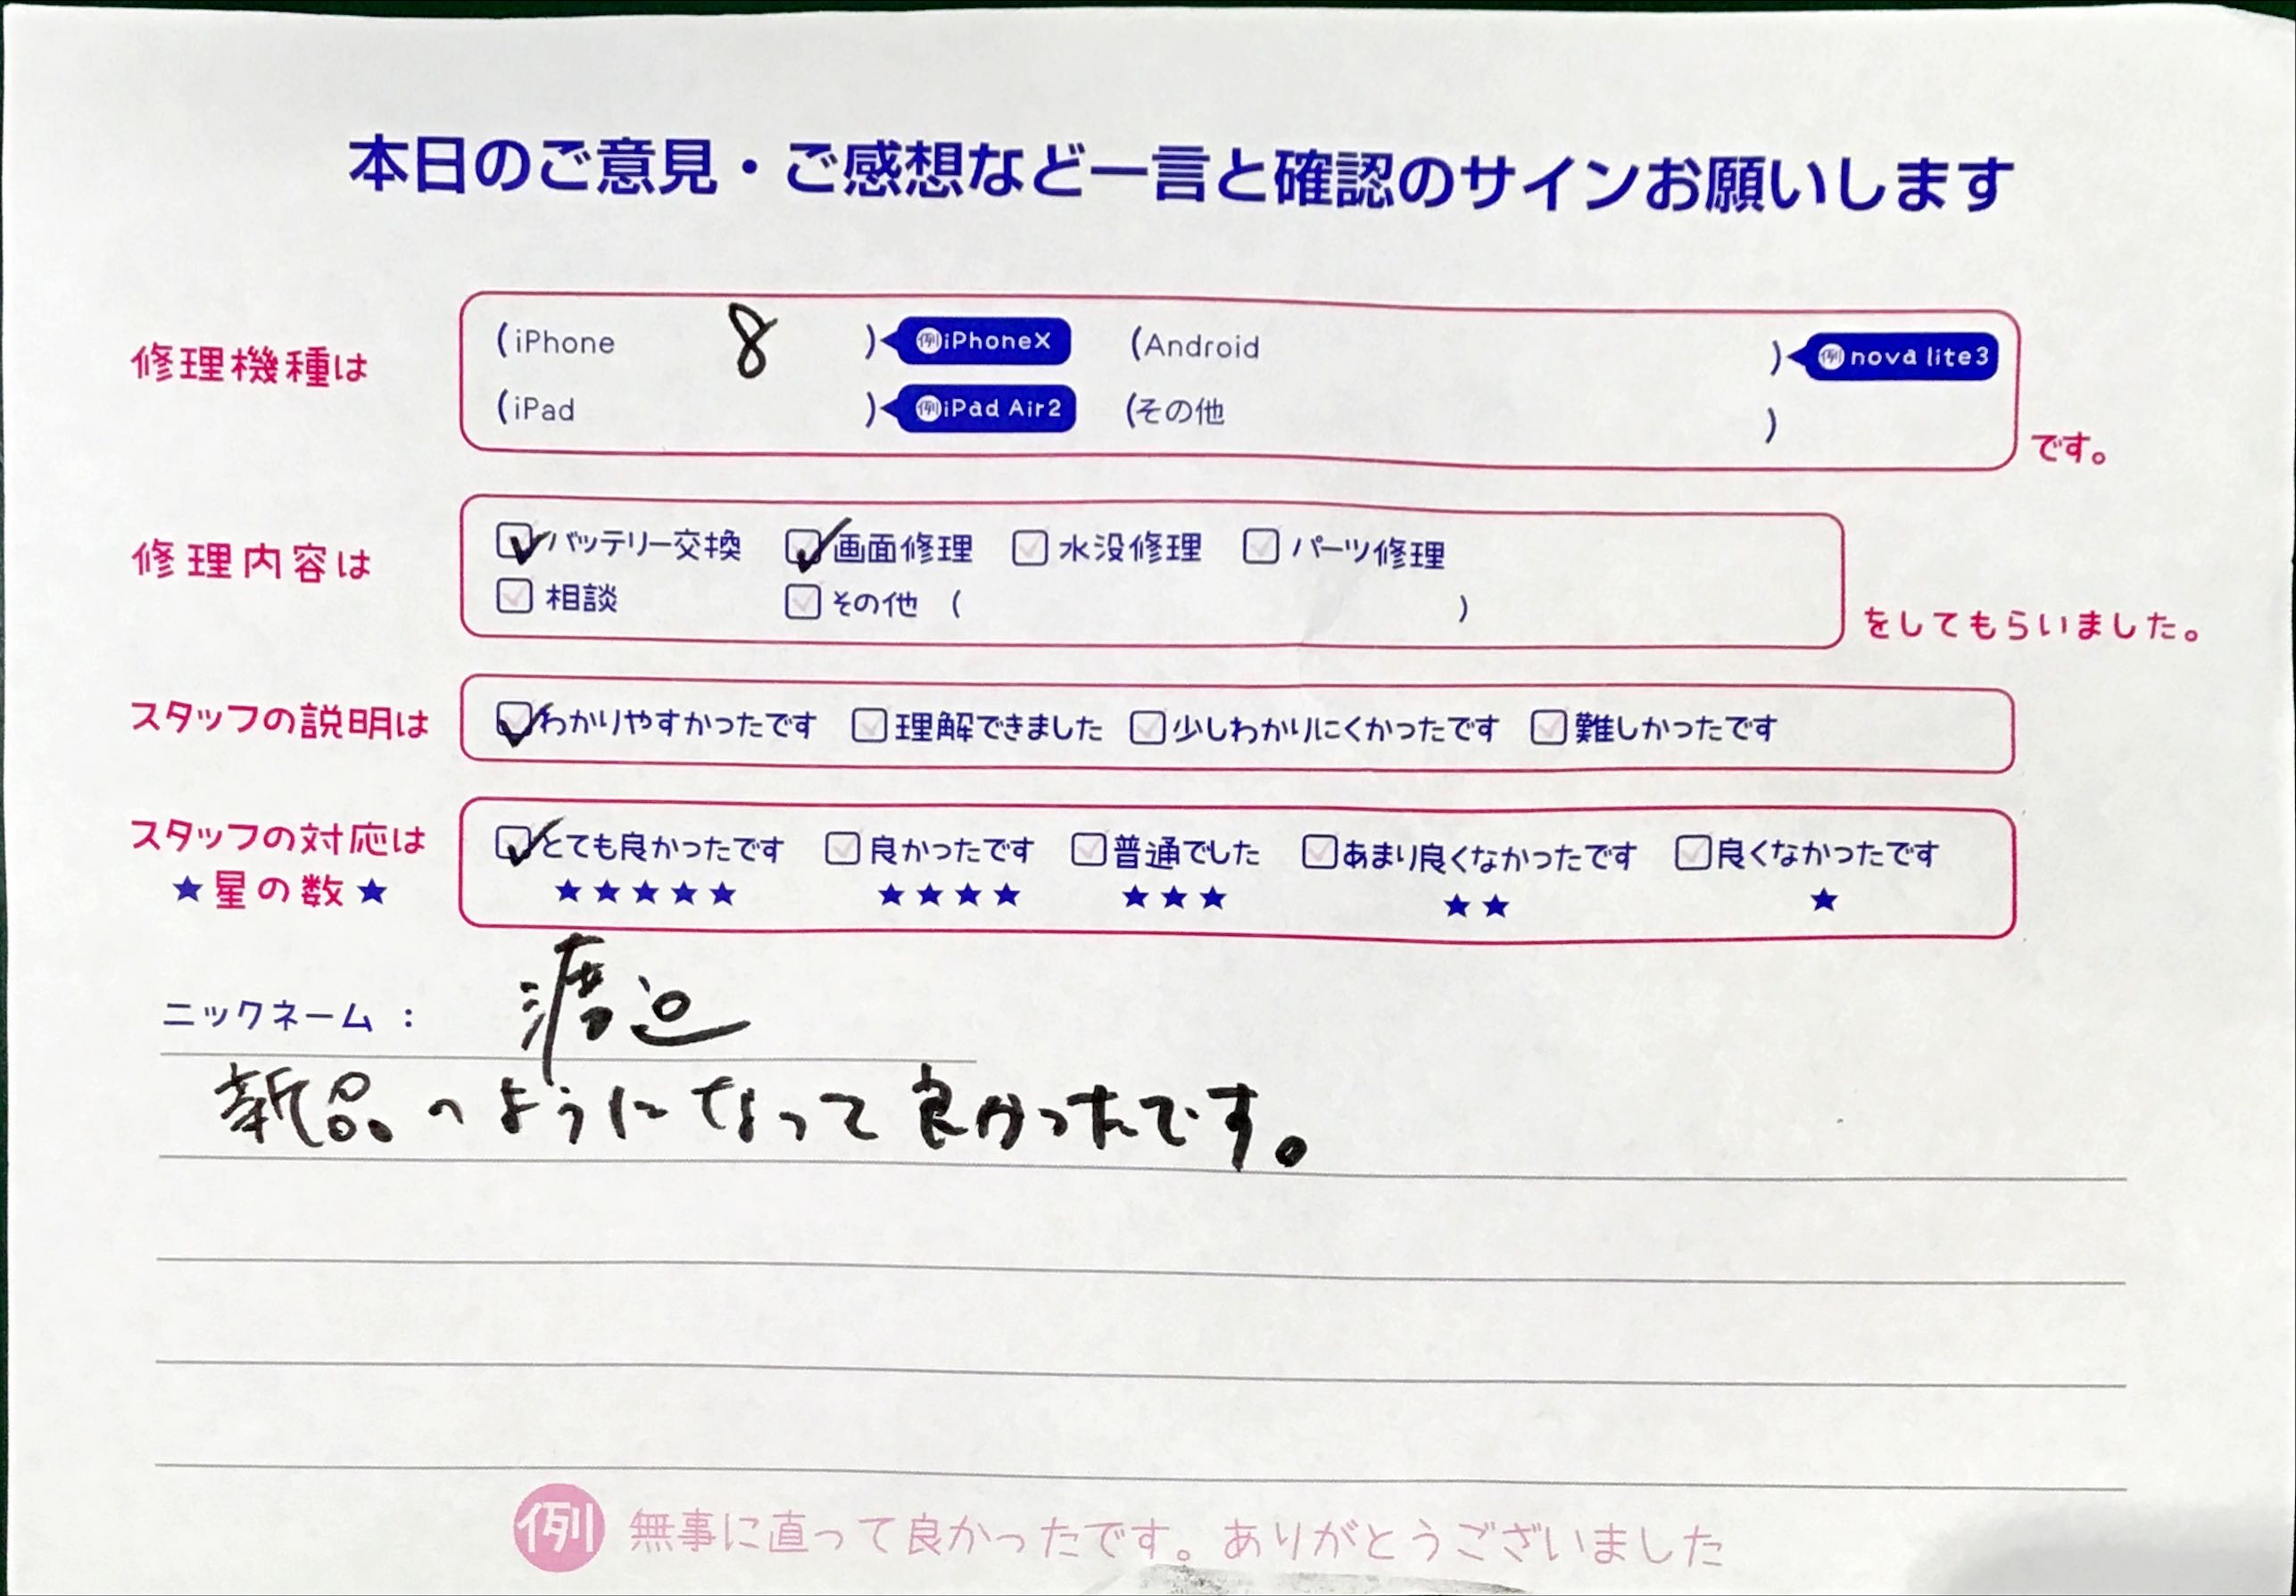 本日のご意見・ご感想など一言と確認のサインお願いします
修理機種は
(iPhone 8 ) 例iPhoneX (Android ) 例nova lite3
(iPad ) 例iPad Air2 (その他 ) です。
修理内容は
バッテリー交換 画面修理 水没修理 パーツ修理
相談 その他 ( ) をしてもらいました。
スタッフの説明は わかりやすかったです 理解できました 少しわかりにくかったです 難しかったです
スタッフの対応は とても良かったです 良かったです 普通でした あまり良くなかったです 良くなかったです
★星の数★ ★★★★★ ★★★★ ★★★ ★★ ★
ニックネーム : 渡辺
新品のようになって良かったです。
例 無事に直って良かったです。ありがとうございました